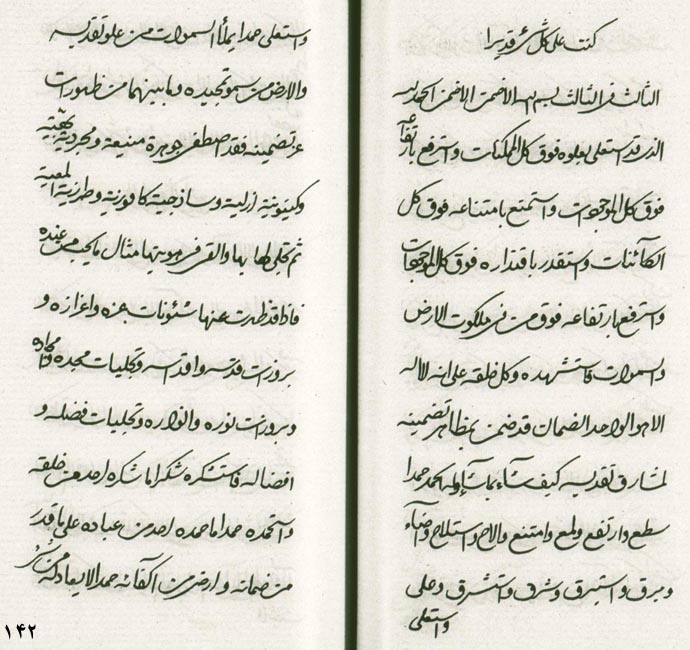 کنت علی کل شیء قدیرا
الثالث فی الثالث بسم الله الاضمن الاضمن الحمد لله
الذی قد استعلی بعلوه فوق کل الممکنات و استرفع بارتفاعه
فوق کل الموجودات و استمنع بامتناعه فوق کل
الکائنات و استقدر باقتداره فوق کل الموجودات
و استرفع بارتفاعه فوق من فی ملکوت الارض
والسموات فاستشهده و کل خلقه علی انه لا اله
الا هو الواحد الضمان قد ضمن بمظاهر تضمینه
لمشارق تقدیسه کیف یشاء بما یشاء فله الحمد حمدا
سطع و ارتفع و لمع و امتنع و الاح و استلاح و اضاء
و برق و استبرق و شرق و استشرق و علی
و استعلی
و استعلی حمدا یملأ السموات من علو تقدیسه
والارض من سمو تمجیده و ما بینهما من ظهورات
عز تضمینه فقد اصطفی جوهرة منیعة و مجردیة بهیة
و کینونیة ازلیة و ساذجیة کافوریة و طرزیة
ثم تجلی لها بها و القی فی هویتها مثال ما یحب من عنده
فاذا قد ظهرت عنها شئونات عزه و اعزازه و
بروزات قدسه و اقداسه و تجلیات مجده و امجاده
و بروزات نوره و انواره و تجلیات فضله و
افضاله فاستشکره شکرا ما شکره احد من خلقه
و استحمده حمدا ما حمده احد من عباده علی ما قدر
من ضمانه و ارضی من اکفائه حمدا لا یعادله من شیء
۱۴۲